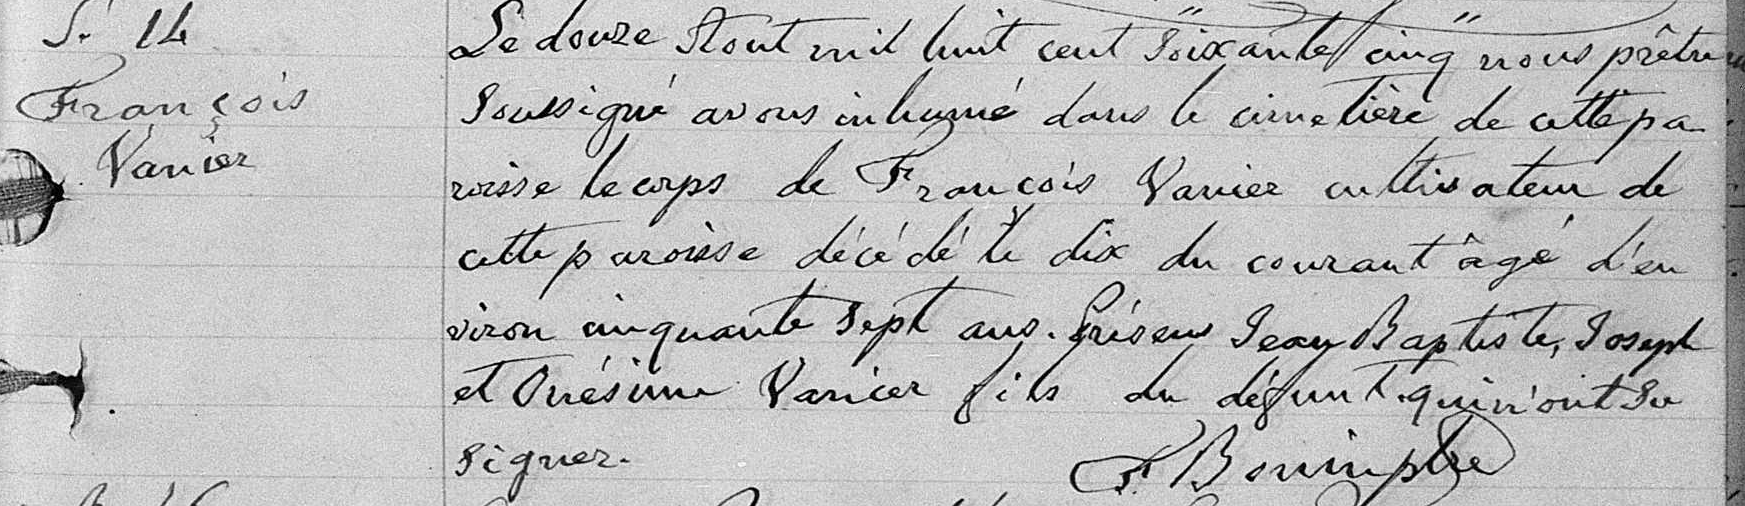 S. 14
François
Vanier
Le douze Aout mil huit cent soixante cinq nous prêtre
soussigné avons inhumé dans le cimetière de cette pa
roisse le corps de François Vanier cultivateur de
cette paroisse décédé le dix du courant âgé d'en
viron cinquante sept ans. Présens Jean Baptiste, Joseph
et Onésime Vanier fils du défunt qui n'ont su
signer.